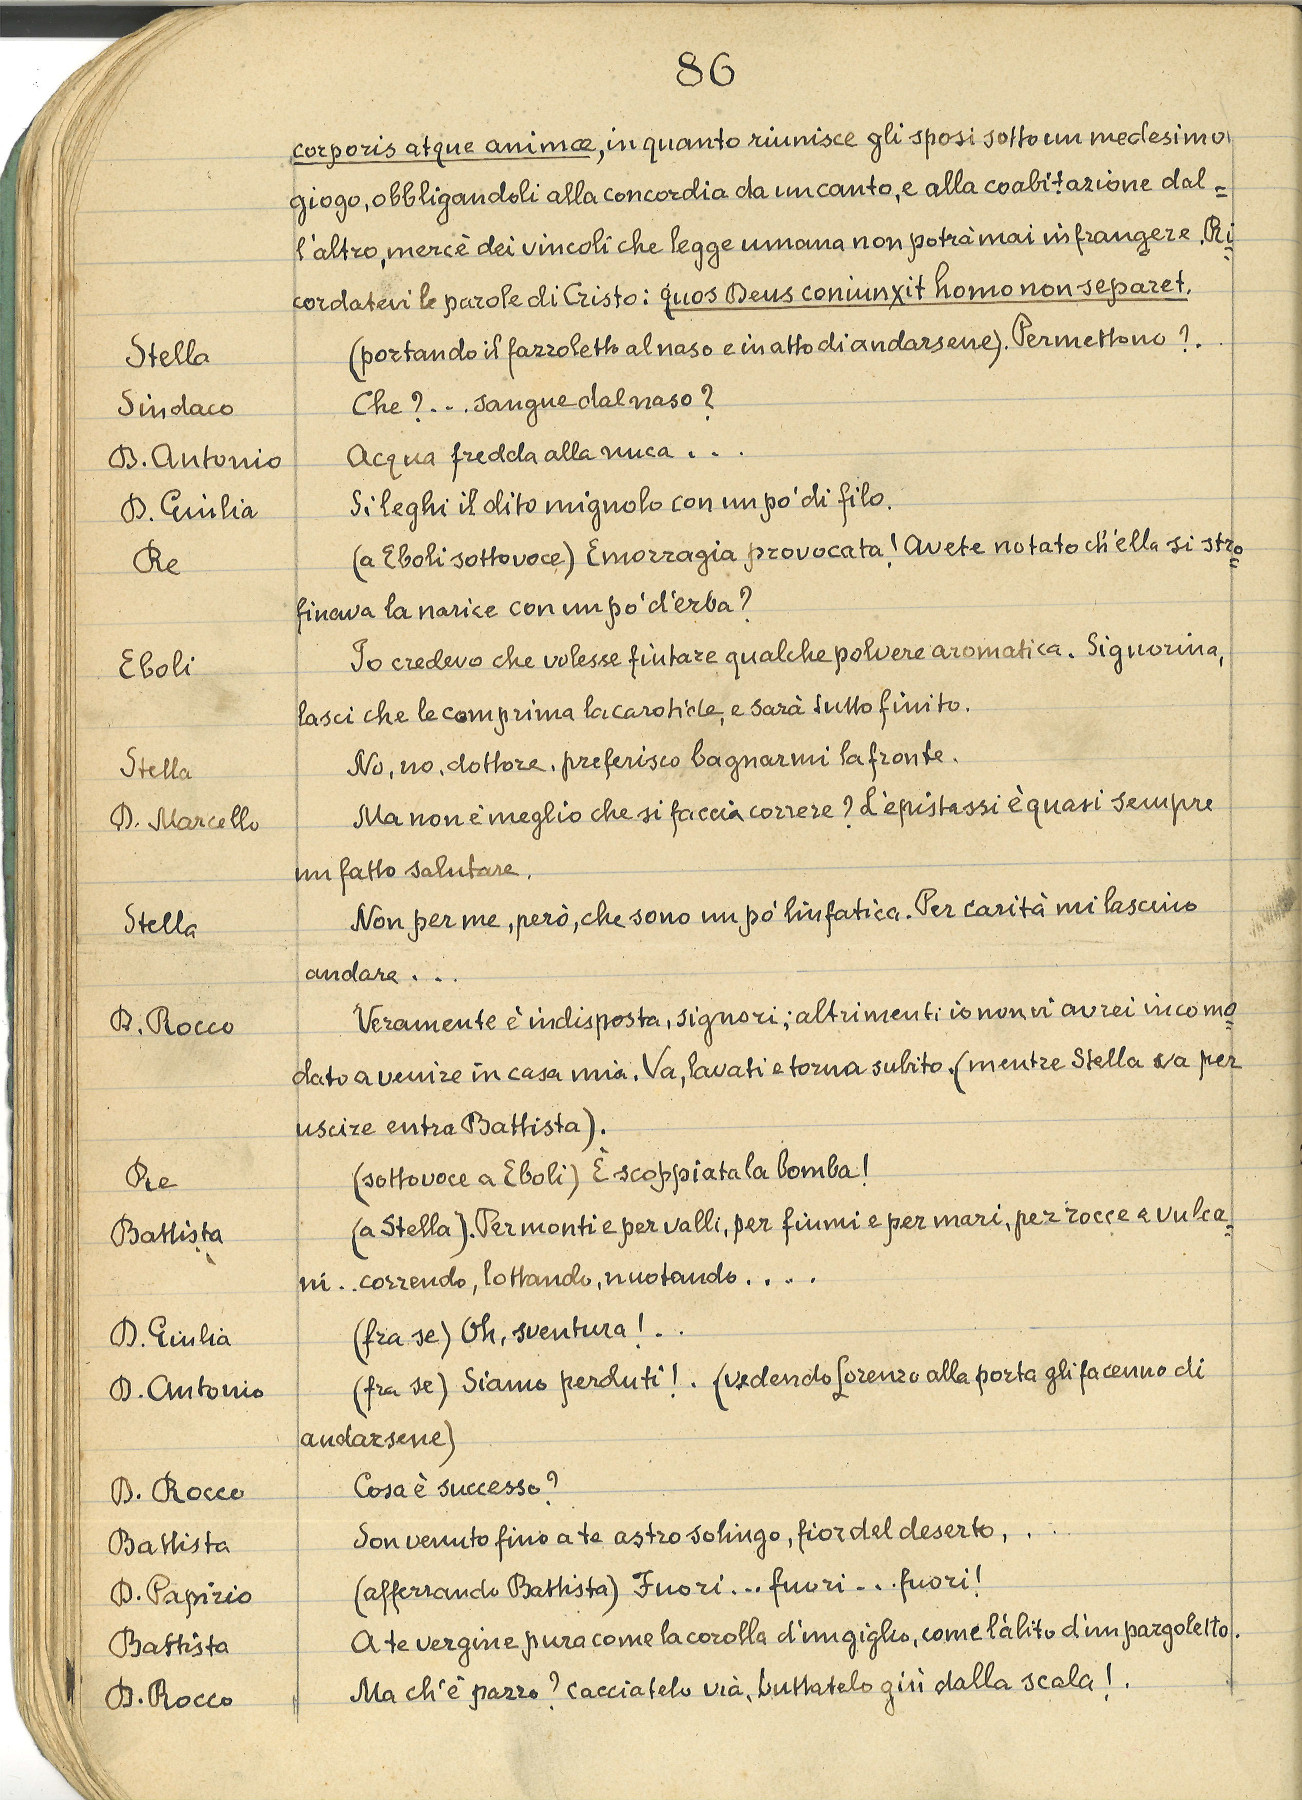 86
corporis atque animæ, in quanto riunisce gli sposi sotto un medesimo
giogo, obbligandoli alla concordia da un canto, e alla coabitazione dal=
l'altro, mercè dei vincoli che legge umana non potrà mai infrangere. Ri=
cordatevi le parole di Cristo: quos Deus coniunxit homo non separet.
Stella (portando il fazzoletto al naso e in atto di andarsene). Permettono?..
Sindaco Che?... sangue dal naso?
D. Antonio Acqua fredda alla nuca...
D. Giulia Si leghi il dito mignolo con un po' di filo.
Re (a Eboli sottovoce) Emorragia provocata! Avete notato ch'ella si stro=
finava la narice con un po' d'erba?
Eboli Io credevo che volesse fiutare qualche polvere aromatica. Signorina,
lasci che le comprima la carotide, e sarà tutto finito.
Stella No, no, dottore, preferisco bagnarmi la fronte.
D. Marcello Ma non è meglio che si faccia correre? L'epistassi è quasi sempre
un fatto salutare.
Stella Non per me, però, che sono un po' linfatica. Per carità mi lascino
andare...
D. Rocco Veramente è indisposta, signori; altrimenti io non vi avrei incomo=
dato a venire in casa mia. Va, lavati e torna subito. (mentre Stella va per
uscire entra Battista).
Re (sottovoce a Eboli) È scoppiata la bomba!
Battista (a Stella). Per monti e per valli, per fiumi e per mari, per rocce e vulca=
ni.. correndo, lottando, nuotando....
D. Giulia (fra se) Oh, sventura!..
D. Antonio (fra se) Siamo perduti!. (vedendo Lorenzo alla porta gli fa cenno di
andarsene)
D. Rocco Cosa è successo?
Battista Son venuto fino a te astro solingo, fior del deserto,..
D. Papirio (afferrando Battista) Fuori... fuori... fuori!
Battista A te vergine pura come la corolla d'un giglio, come l'àlito d'un pargoletto.
D. Rocco Ma ch'è pazzo? cacciatelo via, buttatelo giù dalla scala!.